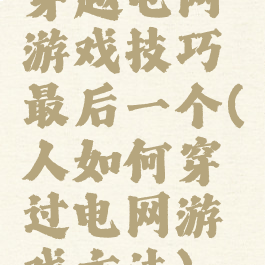 穿越电网
游戏技巧
最后一个(
人如何穿
过电网游
戏方法)